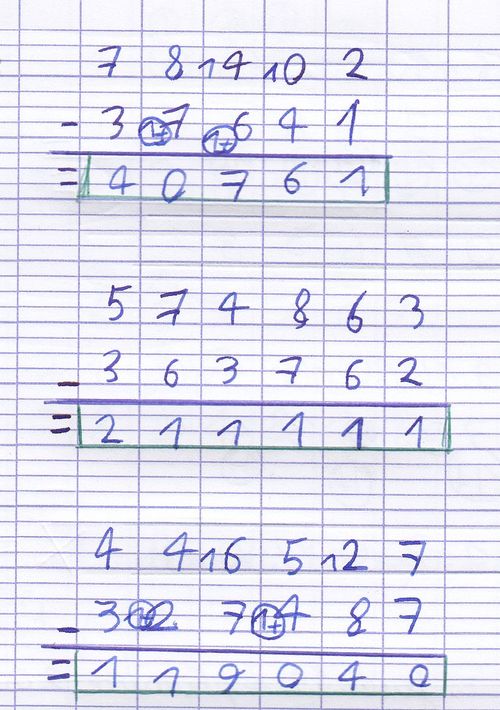 7 8 14 10 2
- 3 1+7 1+6 4 1
= 4 0 7 6 1
5 7 4 8 6 3
- 3 6 3 7 6 2
= 2 1 1 1 1 1
4 4 16 5 12 7
- 3 1+2 7 1+4 8 7
= 1 1 9 0 4 0